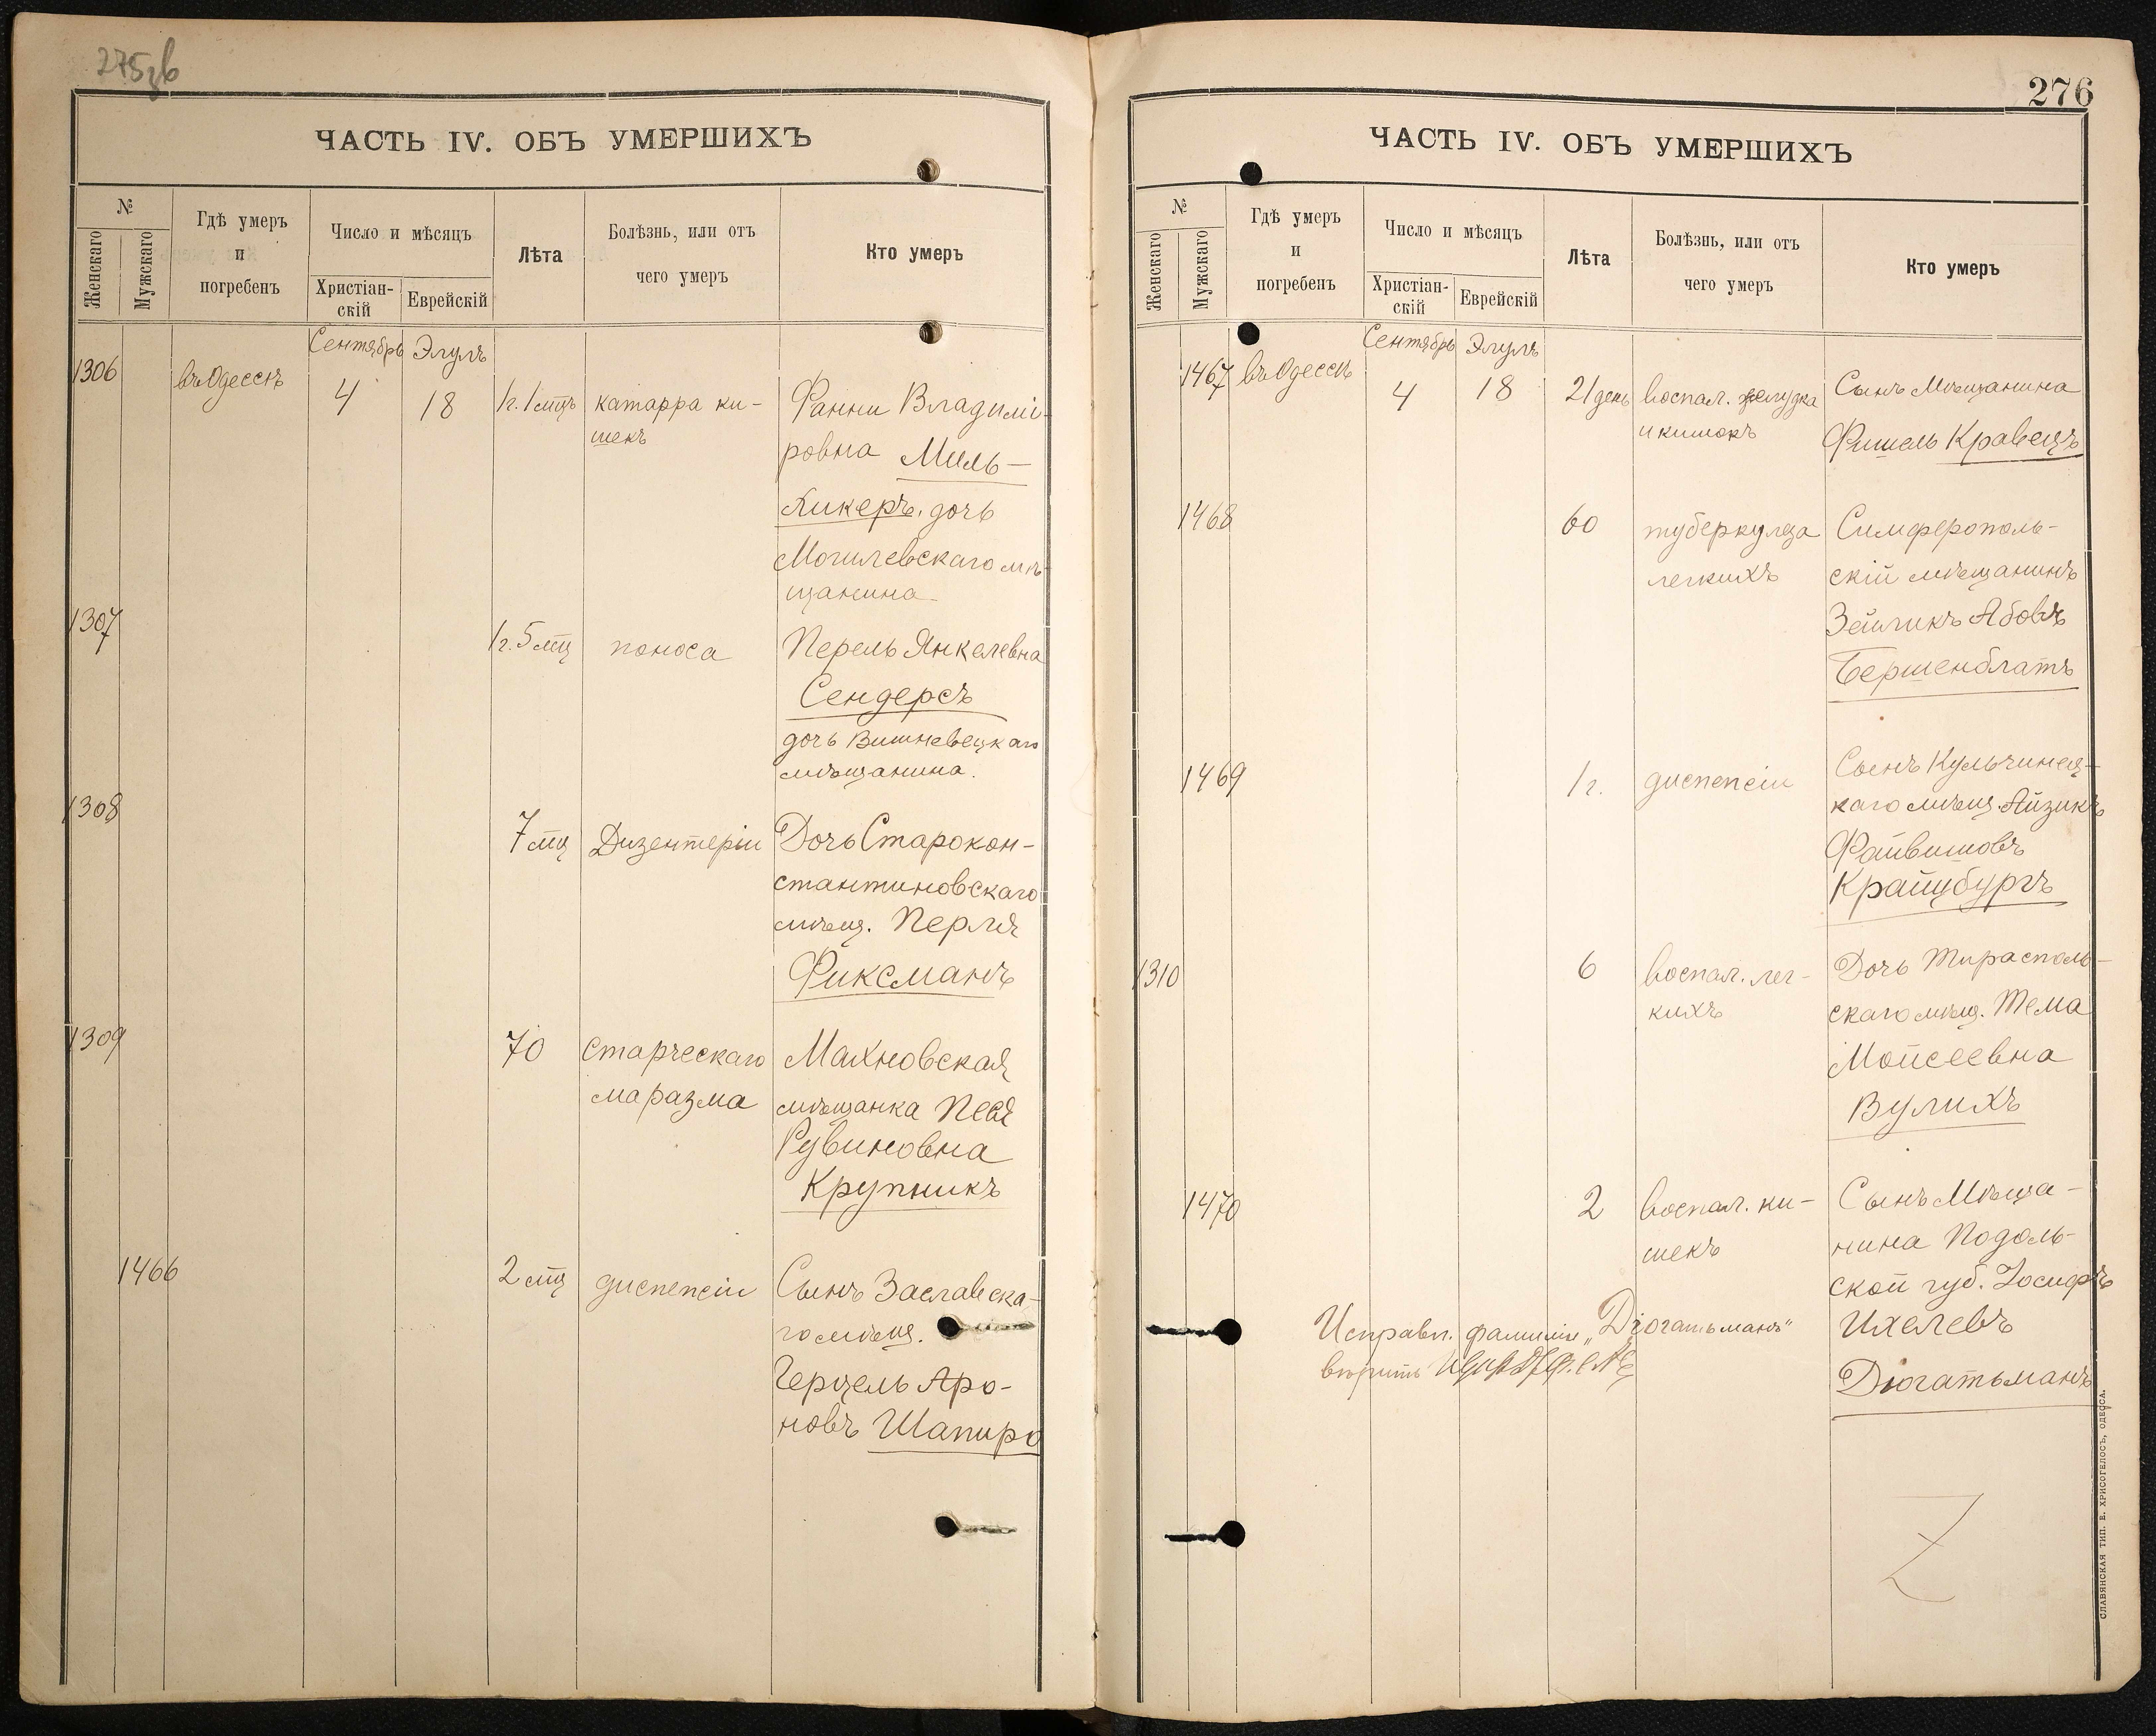 275зв
ЧАСТЬ IV. ОБЪ УМЕРШИХЪ
№
Женскаго
Мужскаго
Гдѣ умеръ
и
погребенъ
Число и мѣсяцъ
Христіан-
скій
Еврейскій
Лѣта
Болѣзнь, или отъ
чего умеръ
Кто умеръ
Сентябрь Элулъ
1306 въ Одессѣ 4 18 1 г. 1 мцъ катарра ки- Фанни Владимі-
шекъ ровна Миль-
кикеръ, дочь
Могилевскаго мѣ-
щанина
1307 1 г. 5 мц поноса Перель Янкелевна
Сендерсъ
дочь Вишневецкаго
мѣщанина.
1308 7 мц Дизентеріи Дочь Старокон-
стантиновскаго
мѣщ. Перля
Фиксманъ
1309 70 старческаго Махновская
маразма мѣщанка Песя
Рувиновна
Крупникъ
1466 2 мц диспепсіи Сынъ Заславска-
го мѣщ.
Герцель Аро-
новъ Шапиро
276
ЧАСТЬ IV. ОБЪ УМЕРШИХЪ
№
Женскаго
Мужскаго
Гдѣ умеръ
и
погребенъ
Число и мѣсяцъ
Христіан-
скій
Еврейскій
Лѣта
Болѣзнь, или отъ
чего умеръ
Кто умеръ
Сентябрь Элулъ
1467 въ Одессѣ 4 18 21 день воспал. желудка Сынъ Мѣщанина
и кишокъ Фишель Кравецъ
1468 60 туберкулза Симферополь-
легкихъ скій мѣщанинъ
Зейликъ Абовъ
Бершенблатъ
1469 1 г. диспепсіи Сынъ Кульчинец-
каго мѣщ. Айзикъ
Файвишовъ
Крайцбургъ
1310 6 воспал. лег- Дочь Тирасполь-
кихъ скаго мѣщ. Тема
Мойсеевна
Вулихъ
1470 2 воспал. ки- Сынъ Мѣща-
шекъ нина Подоль-
ской губ. Іосифъ
Ихелевъ
Дюгатьманъ
Исправл. фамилія „Дюгатьманъ“
вѣрить
СЛАВЯНСКАЯ ТИП. Е. ХРИСОГЕЛОСЪ, ОДЕССА.